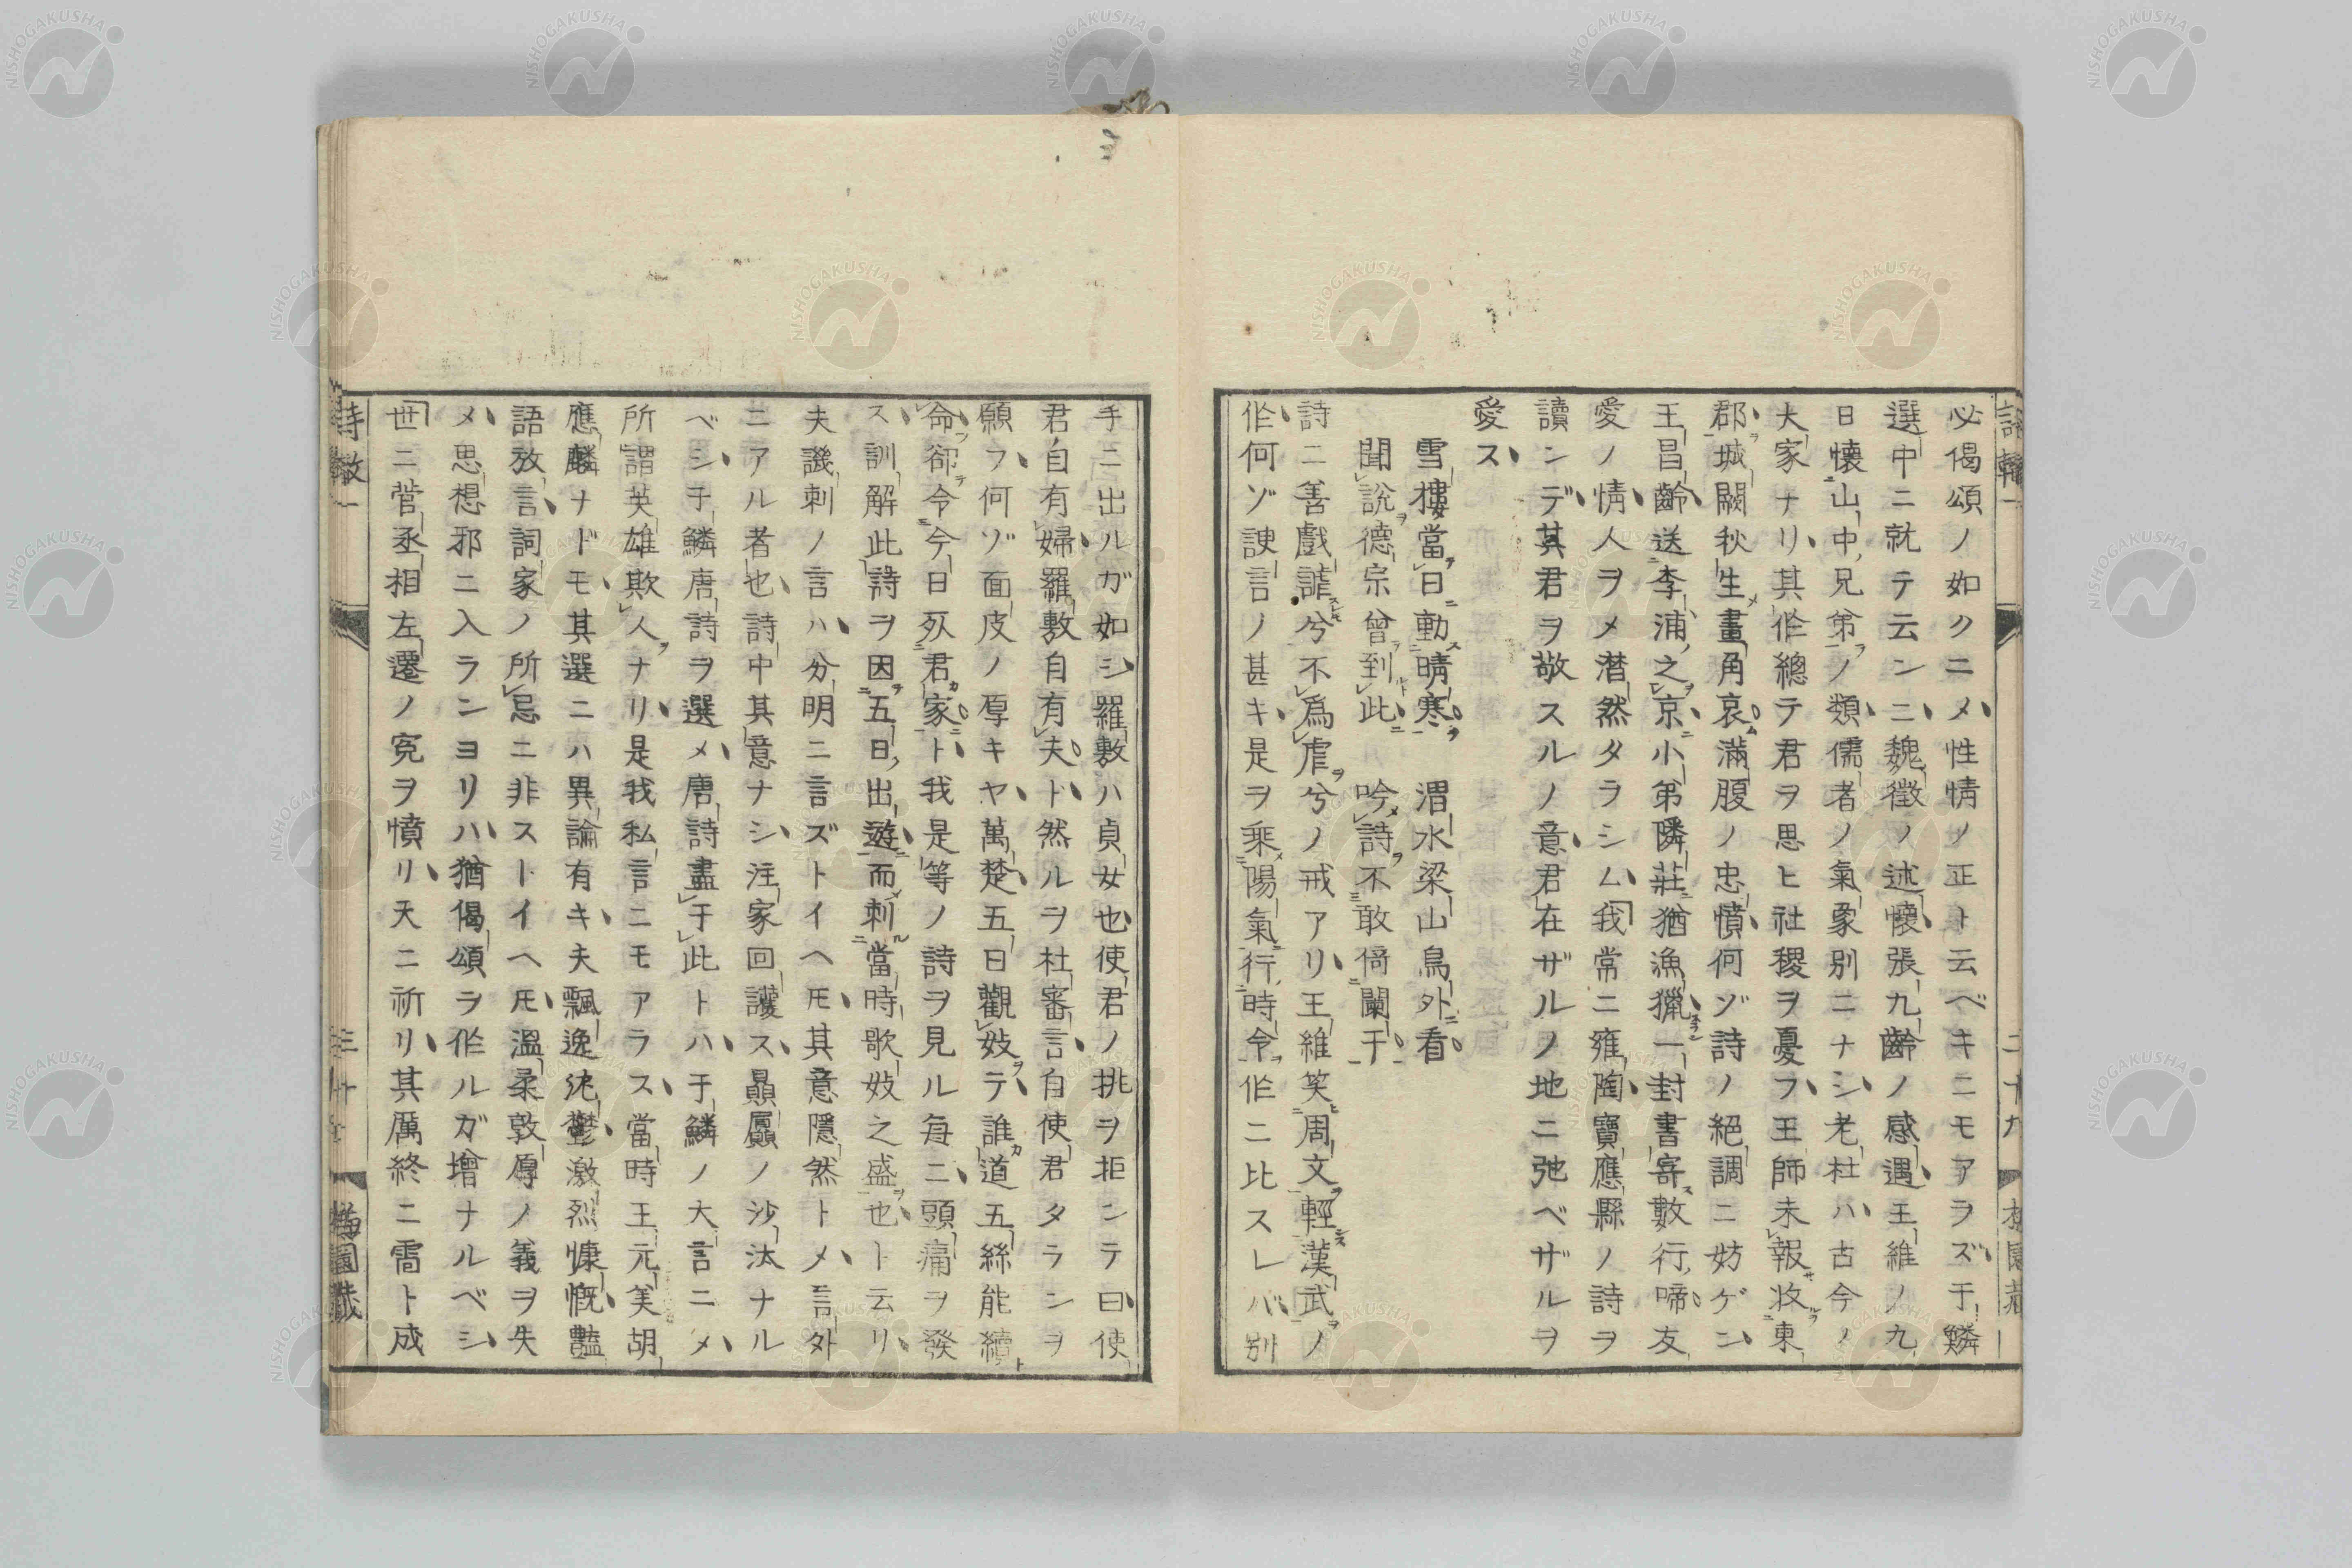 必偈頌ノ如クニメ性情ノ正ト云ベキニモアラズ于鱗
選中ニ就テ云ンニ魏徵ノ述懷張九齡ノ感遇王維ノ九
日懷山中兄弟ノ類儒者ノ氣象別ニナシ老杜ハ古今ノ
大家ナリ其作總テ君ヲ思ヒ社稷ヲ憂フ王師未報收東
郡城闕秋生畫角哀滿腹ノ忠憤何ゾ詩ノ絕調ニ妨ゲン
王昌齡送李浦之京小弟隣莊猶漁獵一封書寄數行啼友
愛ノ情人ヲメ潜然タラシム我常ニ雍陶寶應縣ノ詩ヲ
讀ンデ其君ヲ敬スルノ意君在ザルノ地ニ弛ベザルヲ
愛ス
雪樓當日動晴寒　渭水梁山鳥外看
聞說德宗曾到此　吟詩不敢倚闌干
詩ニ善戲謔兮不爲虐兮ノ戒アリ王維笑周文輕漢武ノ
作何ゾ諛言ノ甚キ是ヲ乘陽氣行時令作ニ比スレバ別
手ニ出ルガ如シ羅敷ハ貞女也使君ノ挑ヲ拒ンテ曰使
君自有婦羅敷自有夫ト然ルヲ杜審言自使君タランヲ
願フ何ゾ面皮ノ厚キヤ萬楚五日觀妓テ誰道五絲能續
命卻令今日死君家ト我是等ノ詩ヲ見ル每ニ頭痛ヲ發
ス訓解此詩ヲ因五日出遊而刺當時歌妓之盛也ト云リ
夫譏刺ノ言ハ分明ニ言ズトイヘ𪜈其意隱然トメ言外
ニアル者也詩中其意ナシ注家回護ス贔屭ノ沙汰ナル
ベシ于鱗唐詩ヲ選メ唐詩盡于此トハ于鱗ノ大言ニメ
所謂英雄欺人ナリ是我私言ニモアラス當時王元美胡
應麟ナドモ其選ニハ異論有キ夫飄逸沈鬱激烈慷慨豔
語放言詞家ノ所忌ニ非ストイヘ𪜈溫柔敦厚ノ義ヲ失
メ思想邪ニ入ランヨリハ猶偈頌ヲ作ルガ增ナルベシ
世ニ菅丞相左遷ノ寃ヲ憤リ天ニ祈リ其厲終ニ雷ト成